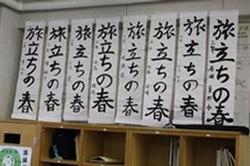 旅立ちの春
旅立ちの春
旅立ちの春
旅立ちの春
旅立ちの春
旅立ちの春
旅立ちの春
旅立ちの春